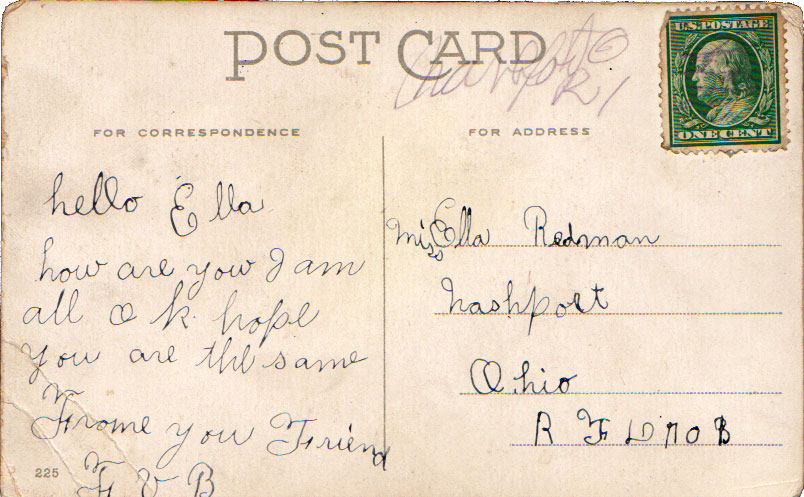 POST CARD
R 1
U.S. POSTAGE
ONE CENT
FOR CORRESPONDENCE
FOR ADDRESS
hello Ella
how are you I am
all O k hope
you are the same
Frome you Friend
F V B
225
Miss Ella Redman
Nashport
Ohio
R F D no B